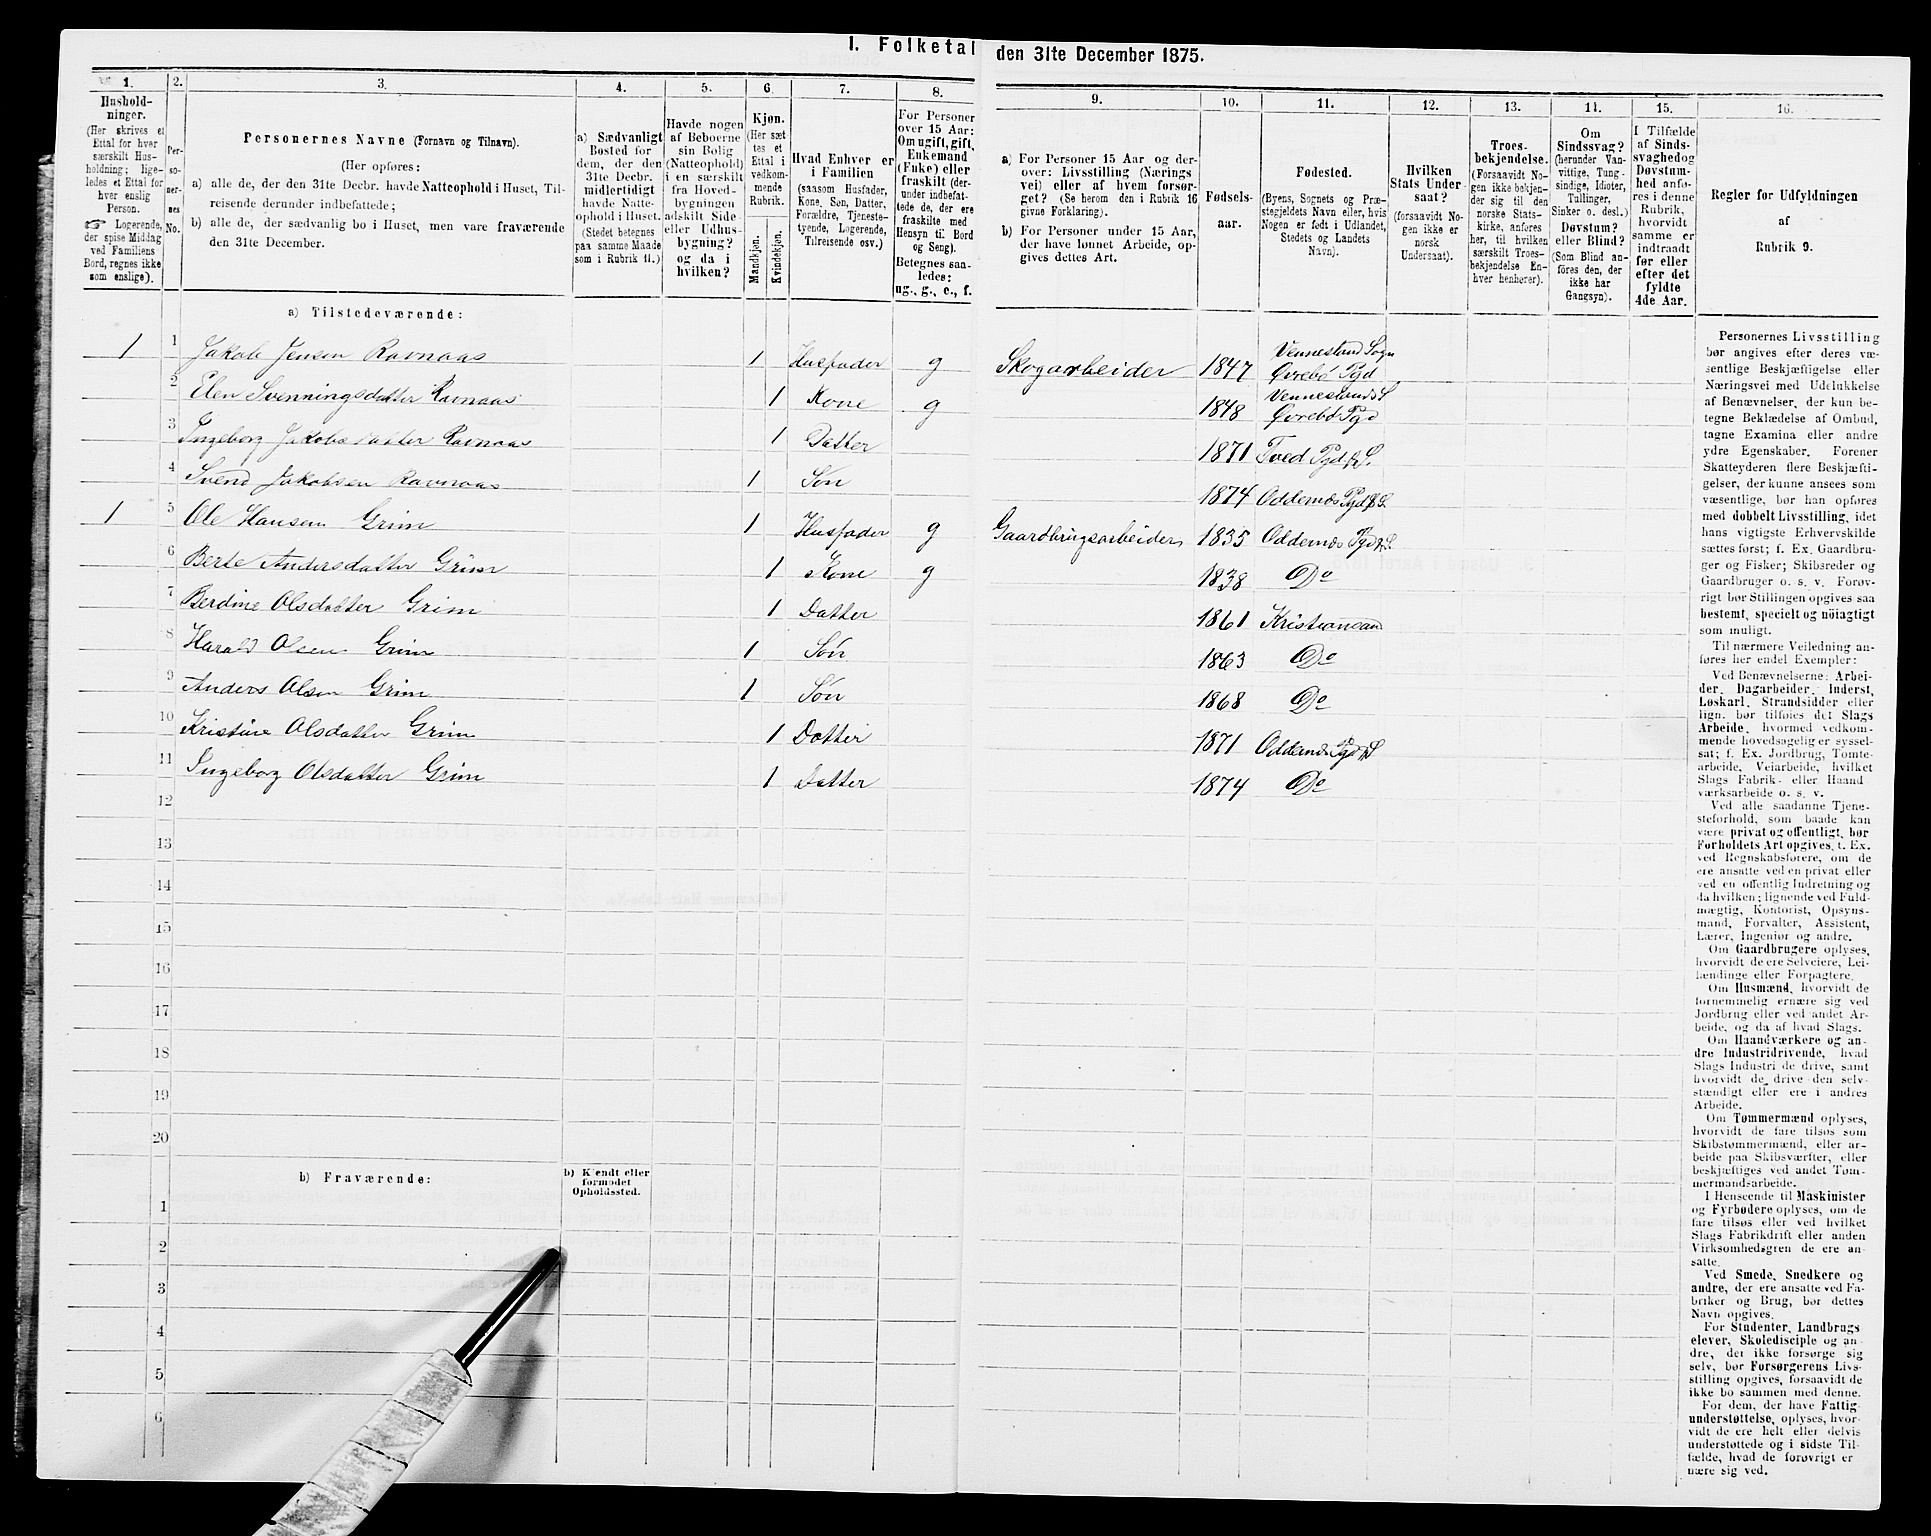 1. Folketal den 31te December 1875.
1. 2. 3. 4. 5. 6. 7. 8. 9. 10. 11. 12. 13. 14. 15. 16.
Hushold-
ninger.
(Her skrives et
Ettal for hver
særskilt Hus-
holdning; lige-
ledes et Ettal for
hver enslig
Person.
☞ Logerende,
der spise Middag
ved Familiens
Bord, regnes ikke
som enslige).
Per-
so-
ner-
nes
No.
Personernes Navne (Fornavn og Tilnavn).
(Her opføres:
a) alle de, der den 31te Decbr. havde Natteophold i Huset, Til-
reisende derunder indbefattede;
b) alle de, der sædvanlig bo i Huset, men vare fraværende
den 31te December.
a) Sædvanligt
Bosted for
dem, der den
31te Decbr.
midlertidigt
havde Natte-
ophold i Huset.
(Stedet betegnes
paa samme Maade
som i Rubrik 11.)
Havde nogen
af Beboerne
sin Bolig
(Natteophold)
i en særskilt
fra Hoved-
bygningen
adskilt Side-
eller Udhus-
bygning?
og da i
hvilken?
Kjøn.
(Her sæt-
tes et
Ettal i
vedkom-
mende
Rubrik.
Mandkjøn.
Kvindekjøn.
Hvad Enhver er
i Familien
(saasom Husfader,
Kone, Søn, Datter,
Forældre, Tjeneste-
tyende, Logerende,
Tilreisende osv.)
For Personer
over 15 Aar:
Om ugift, gift,
Enkemand
(Enke) eller
fraskilt (der-
under indbefat-
tede de, der ere
fraskilte med
Hensyn til Bord
og Seng).
Betegnes saa-
ledes:
ug., g., e., f.
a) For Personer 15 Aar og der-
over: Livsstilling (Nærings
vei) eller af hvem forsør-
get? (Se herom den i Rubrik 16
givne Forklaring).
b) For Personer under 15 Aar,
der have lønnet Arbeide, op-
gives dettes Art.
Fødsels-
aar.
Fødested.
(Byens, Sognets og Præ-
stegjeldets Navn eller, hvis
Nogen er født i Udlandet,
Stedets og Landets
Navn).
Hvilken
Stats Under-
saat?
(forsaavidt No-
gen ikke er
norsk
Undersaat).
Troes-
bekjendelse.
(Forsaavidt No-
gen ikke bekjen-
der sig til den
norske Stats-
kirke, anføres
her, til hvilken
særskilt Troes-
bekjendelse En-
hver henhører).
Om
Sindssvag?
(herunder Van-
vittige, Tung-
sindige, Idioter,
Tullinger,
Sinker o. desl.)
Døvstum?
eller Blind?
(Som Blind an-
føres den, der
ikke har
Gangsyn).
I Tilfælde
af Sinds-
svaghed og
Døvstum-
hed anfø-
res i denne
Rubrik,
hvorvidt
samme er
indtraadt
før eller
efter det
fyldte
4de Aar.
Regler for Udfyldningen
af
Rubrik 9.
a) Tilstedeværende:
1 1 Jakob Jensen Ravnaas 1 Husfader g Skogarbeider 1847 Vennesland Sogn Øvrebø Pgd
2 Elen Svenningsdatter Ravnaas 1 Kone g 1848 Vennesland S Øvrebø Pgd
3 Ingeborg Jakobsdatter Ravnaas 1 Datter 1871 Tved Pgd & S.
4 Svend Jakobsen Ravnaas 1 Søn 1874 Oddernæs Pgd & S.
1 5 Ole Hansen Grim 1 Husfader g Gaardbrugsarbeider 1835 Oddernæs Pgd & S.
6 Berte Andersdatter Grim 1 Kone g 1838 Do
7 Berdine Olsdatter Grim 1 Datter 1861 Kristiansand
8 Harald Olsen Grim 1 Søn 1863 Do
9 Anders Olsen Grim 1 Søn 1868 Do
10 Kristine Olsdatter Grim 1 Datter 1871 Oddernæs Pgd & S
11 Ingeborg Olsdatter Grim 1 Datter 1874 Do
12
13
14
15
16
17
18
19
20
b) Fraværende:
b) Kjendt eller
formodet
Opholdssted.
1
2
3
4
5
6
Personernes Livsstilling
bør angives efter deres væ-
sentlige Beskjæftigelse eller
Næringsvei med Udelukkelse
af Benævnelser, der kun be-
tegne Beklædelse af Ombud,
tagne Examina eller andre
ydre Egenskaber. Forener
Skatteyderen flere Beskjæfti-
gelser, der kunne ansees som
væsentlige, bør han opføres
med dobbelt Livsstilling, idet
hans vigtigste Erhvervskilde
sættes først; f. Ex. Gaardbru-
ger og Fisker; Skibsreder og
Gaardbruger o. s. v. Forøv-
rigt bør Stillingen opgives saa
bestemt, specielt og nøiagtigt
som muligt.
Til nærmere Veiledning an-
føres her endel Exempler:
Ved Benævnelserne: Arbei-
der, Dagarbeider, Inderst,
Løskarl, Strandsidder eller
lign. bør tilføies det Slags
Arbeide, hvormed vedkom-
mende hovedsagelig er syssel-
sat; f. Ex. Jordbrug, Tomte-
arbeide, Veiarbeide, hvilket
Slags Fabrik- eller Haand
værksarbeide o. s. v.
Ved alle saadanne Tjene-
steforhold, som baade kan
være privat og offentligt, bør
Forholdets Art opgives, t. Ex.
ved Regnskabsførere, om de
ere ansatte ved en privat eller
ved en offentlig Indretning og
da hvilken; lignende ved Fuld-
mægtig, Kontorist, Opsyns-
mand, Forvalter, Assistent,
Lærer, Ingeniør og andre.
Om Gaardbrugere oplyses,
hvorvidt de ere Selveiere, Lei-
lændinge eller Forpagtere.
Om Husmænd, hvorvidt de
fornemmelig ernære sig ved
Jordbrug eller ved andet Ar-
beide, og da af hvad Slags.
Om Haandværkere og an-
dre Industridrivende, hvad
Slags Industri de drive, samt
hvorvidt de drive den selv-
stændigt eller ere i andres
Arbeide.
Om Tømmermænd oplyses,
hvorvidt de fare tilsøs som
Skibstømmermænd, eller ar-
beide paa Skibsværfter, eller
beskjæftiges ved andet Tøm-
mermandsarbeide.
I Henseende til Maskinister
og Fyrbødere oplyses, om de
fare tilsøs eller ved hvilket
Slags Fabrikdrift eller anden
Virksomhedsgren de ere an-
satte.
Ved Smede, Snedkere og
andre, der ere ansatte ved Fa-
briker og Brug, bør dettes
Navn opgives.
For Studenter, Landbrugs
elever, Skoledisciple og an-
dre, der ikke forsørge sig
selv, bør Forsørgerens Livs-
stilling opgives, forsaavidt de
ikke bo sammen med denne.
For dem, der have Fattig
understøttelse, oplyses, hvor-
vidt de ere helt eller delvis
understøttede og i sidste Til-
fælde, hvad de forøvrigt er
nære sig ved.